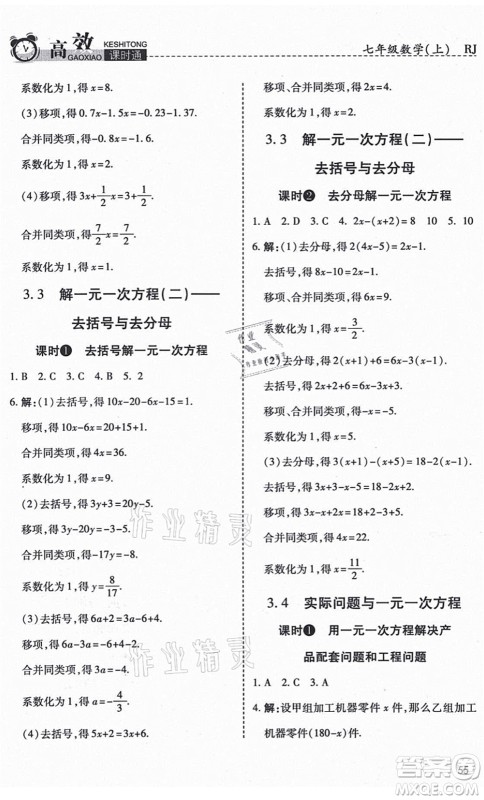 高效 KESHITONG
GAOXIAO 课时通
七年级数学(上) RJ
系数化为1,得x=8.
(3)移项,得0.7x-1.5x=-1.3-1.1.
合并同类项,得-0.8x=-2.4.
系数化为1,得x=3.
(4)移项,得3x+1/2x=3+1/2.
合并同类项,得7/2x=7/2.
系数化为1,得x=1.
3.3 解一元一次方程(二)——
去括号与去分母
课时❶ 去括号解一元一次方程
1. B 2. C 3. C 4. B 5. 2
6. 解:(1)去括号,得10x-20-6x=15+1.
移项,得10x-6x=20+15+1.
合并同类项,得4x=36.
系数化为1,得x=9.
(2)去括号,得3y+3=20y-5.
移项,得3y-20y=-5-3.
合并同类项,得-17y=-8.
系数化为1,得y=8/17.
(3)去括号,得6a+2=3a+3-5.
移项,得6a-3a=3-5-2.
合并同类项,得3a=-4.
系数化为1,得a=-4/3.
(4)去括号,得3x-7x+7=3-2x-6.
移项,得3x-7x+2x=3-6-7.
合并同类项,得-2x=-10.
系数化为1,得x=5.
移项、合并同类项,得2x=4.
系数化为1,得x=2.
3.3 解一元一次方程(二)——
去括号与去分母
课时❷ 去分母解一元一次方程
1. A 2. D 3. C 4. 2x-(x+2)=8 10 5. 10
6. 解:(1)去分母,得2(4x-5)=2x-1.
去括号,得8x-10=2x-1.
移项、合并同类项,得6x=9.
系数化为1,得x=3/2.
(3)去分母,得3(x+1)-(x+5)=18-2(x-1).
去括号,得3x+3-x-5=18-2x+2.
移项、合并同类项,得4x=22.
系数化为1,得x=11/2.
3.4 实际问题与一元一次方程
课时❶ 用一元一次方程解决产
品配套问题和工程问题
1. A 2. D 3. A
4. 解:设甲组加工机器零件x件,那么乙组加工
机器零件(180-x)件.
作业精灵
作业精灵
答案圈
55
MXQE.COM